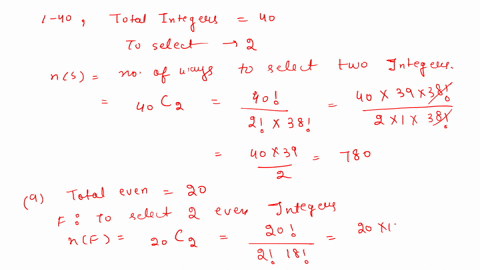 1-40, Total Integers = 40
To select → 2
n(S) = no. of ways to select two Integers.
= 40C2 = 40! / 2! × 38! = 40 × 39 × 38! / 2 × 1 × 38!
= 40 × 39 / 2 = 780
(a) Total even = 20
F: To select 2 even Integers
n(F) = 20C2 = 20! / 2! 18! = 20 × 1